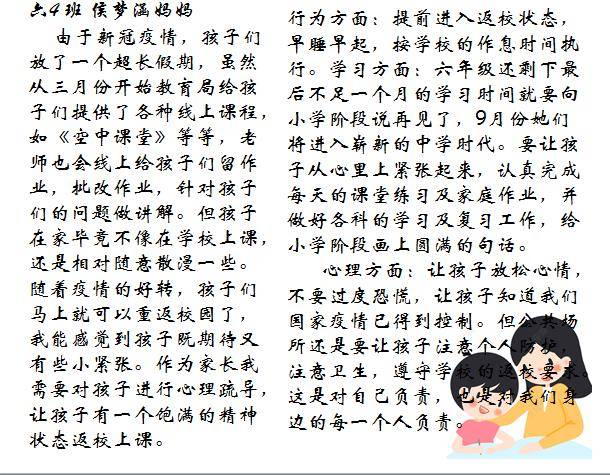 六4班 侯梦涵妈妈
由于新冠疫情，孩子们
放了一个超长假期，虽然
从三月份开始教育局给孩
子们提供了各种线上课程，
如《空中课堂》等等，老
师也会线上给孩子们留作
业，批改作业，针对孩子
们的问题做讲解。但孩子
在家毕竟不像在学校上课，
还是相对随意散漫一些。
随着疫情的好转，孩子们
马上就可以重返校园了，
我能感觉到孩子既期待又
有些小紧张。作为家长我
需要对孩子进行心理疏导，
让孩子有一个饱满的精神
状态返校上课。
行为方面：提前进入返校状态，
早睡早起，按学校的作息时间执
行。学习方面：六年级还剩下最
后不足一个月的学习时间就要向
小学阶段说再见了，9月份她们
将进入崭新的中学时代。要让孩
子从心里上紧张起来，认真完成
每天的课堂练习及家庭作业，并
做好各科的学习及复习工作，给
小学阶段画上圆满的句话。
心理方面：让孩子放松心情，
不要过度恐慌，让孩子知道我们
国家疫情已得到控制。但公共场
所还是要让孩子注意个人防护，
注意卫生，遵守学校的返校要求。
这是对自己负责，也是对我们身
边的每一个人负责。